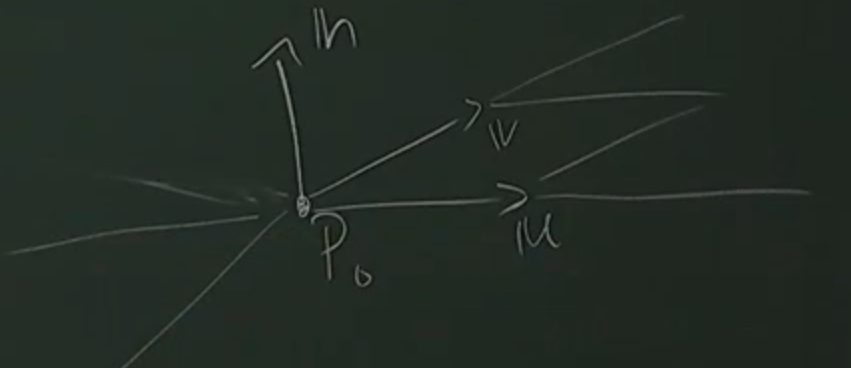 𝕟
𝕧
𝕦
P₀